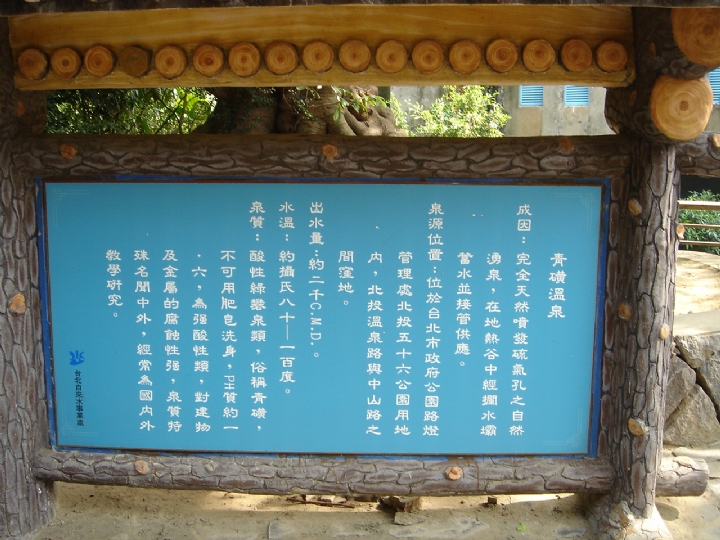 青磺溫泉
成因：完全天然噴發硫氣孔之自然
湧泉，在地熱谷中經攔水壩
蓄水並接管供應。
泉源位置：位於台北市政府公園路燈
管理處北投五十六公園用地
內，北投溫泉路與中山路之
間窪地。
出水量：約二千C.M.D.。
水溫：約攝氏八十—一百度。
泉質：酸性綠礬泉類，俗稱青磺，
不可用肥皂洗身，PH質約一
．六，為强酸性類，對建物
及金屬的腐蝕性强，泉質特
殊名聞中外，經常為國內外
教學研究。
台北自來水事業處